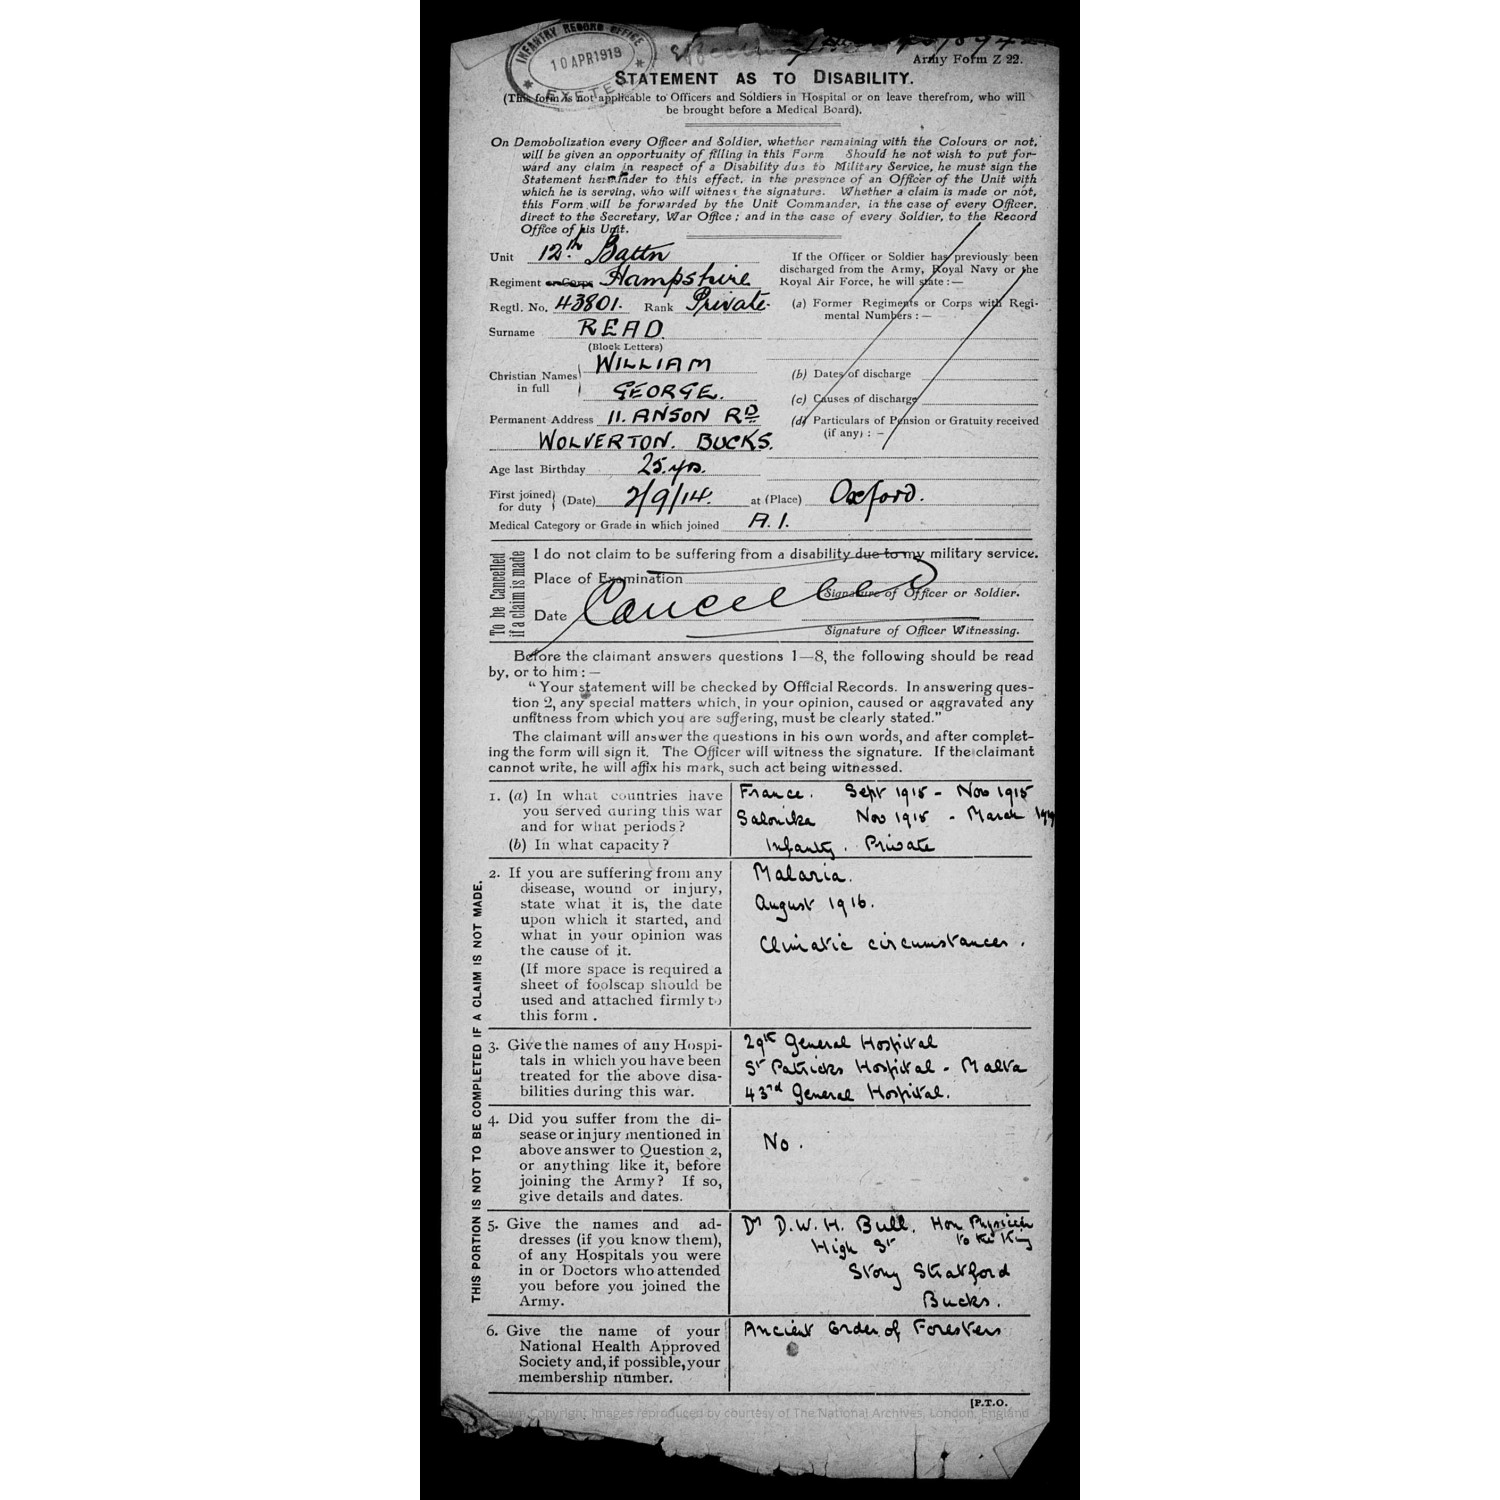 INFANTRY RECORD OFFICE
10 APR 1919
EXETER
Army Form Z 22.
STATEMENT AS TO DISABILITY.
(This form is not applicable to Officers and Soldiers in Hospital or on leave therefrom, who will
be brought before a Medical Board).
On Demobolization every Officer and Soldier, whether remaining with the Colours or not,
will be given an opportunity of filling in this Form Should he not wish to put for-
ward any claim in respect of a Disability due to Military Service, he must sign the
Statement hereunder to this effect, in the presence of an Officer of the Unit with
which he is serving, who will witness the signature. Whether a claim is made or not,
this Form will be forwarded by the Unit Commander, in the case of every Officer,
direct to the Secretary, War Office; and in the case of every Soldier, to the Record
Office of his Unit.
Unit 12th Battn
Regiment or Corps Hampshire
Regtl. No. 43801. Rank Private
Surname READ
(Block Letters)
Christian Names in full WILLIAM
GEORGE.
Permanent Address 11. ANSON RD
WOLVERTON. BUCKS.
Age last Birthday 25 yrs.
If the Officer or Soldier has previously been
discharged from the Army, Royal Navy or the
Royal Air Force, he will state:—
(a) Former Regiments or Corps with Regi-
mental Numbers:—
(b) Dates of discharge
(c) Causes of discharge
(d) Particulars of Pension or Gratuity received
(if any): –
First joined for duty (Date) 2/9/14. at (Place) Oxford.
Medical Category or Grade in which joined A.1.
To be Cancelled
if a claim is made
I do not claim to be suffering from a disability due to my military service.
Place of Examination
Signature of Officer or Soldier.
Date Cancelled
Signature of Officer Witnessing.
Before the claimant answers questions 1—8, the following should be read
by, or to him:—
"Your statement will be checked by Official Records. In answering ques-
tion 2, any special matters which, in your opinion, caused or aggravated any
unfitness from which you are suffering, must be clearly stated."
The claimant will answer the questions in his own words, and after complet-
ing the form will sign it. The Officer will witness the signature. If the claimant
cannot write, he will affix his mark, such act being witnessed.
THIS PORTION IS NOT TO BE COMPLETED IF A CLAIM IS NOT MADE.
1. (a) In what countries have
you served during this war
and for what periods?
(b) In what capacity?
France. Sept 1915 - Nov 1915
Salonika Nov 1915 - March 1919
Infantry. Private
2. If you are suffering from any
disease, wound or injury,
state what it is, the date
upon which it started, and
what in your opinion was
the cause of it.
(If more space is required a
sheet of foolscap should be
used and attached firmly to
this form.
Malaria.
August 1916.
Climatic circumstances.
3. Give the names of any Hospi-
tals in which you have been
treated for the above disa-
bilities during this war.
29th General Hospital
St Patricks Hospital - Malta
43rd General Hospital.
4. Did you suffer from the di-
sease or injury mentioned in
above answer to Question 2,
or anything like it, before
joining the Army? If so,
give details and dates.
No.
5. Give the names and ad-
dresses (if you know them),
of any Hospitals you were
in or Doctors who attended
you before you joined the
Army.
Dr D.W.H. Bull. Hon Physician
High St to the King
Stony Stratford
Bucks.
6. Give the name of your
National Health Approved
Society and, if possible, your
membership number.
Ancient Order of Foresters
[P.T.O.
Crown Copyright Images reproduced by courtesy of The National Archives, London, England